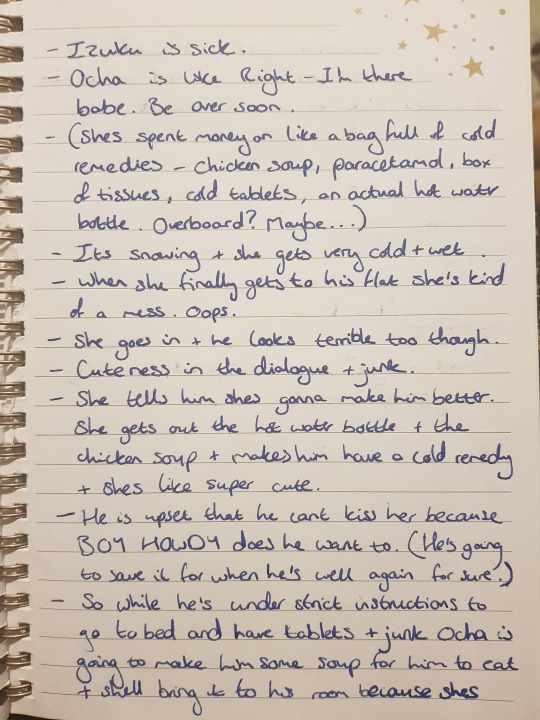 - Izuku is sick.
- Ocha is like Right - I'm there
babe. Be over soon.
- (Shes spent money on like a bag full of cold
remedies - Chicken soup, paracetamol, box
of tissues, cold tablets, an actual hot watr
bottle. Overboard? Maybe...)
- Its snowing + she gets very cold + wet.
- When she finally gets to his flat she's kind
of a mess. Oops.
- She goes in + he looks terrible too though.
- Cuteness in the dialogue + junk.
- She tells him shes gonna make him better.
She gets out the hot watr bottle + the
chicken soup + makes him have a cold remedy
+ shes like super cute.
- He is upset that he cant kiss her because
BOY HOWDY does he want to. (He's going
to save it for when he's well again for sure.)
- So while he's under strict instructions to
go to bed and have tablets + junk Ocha is
going to make him some soup for him to eat
+ shell bring it to his room because shes